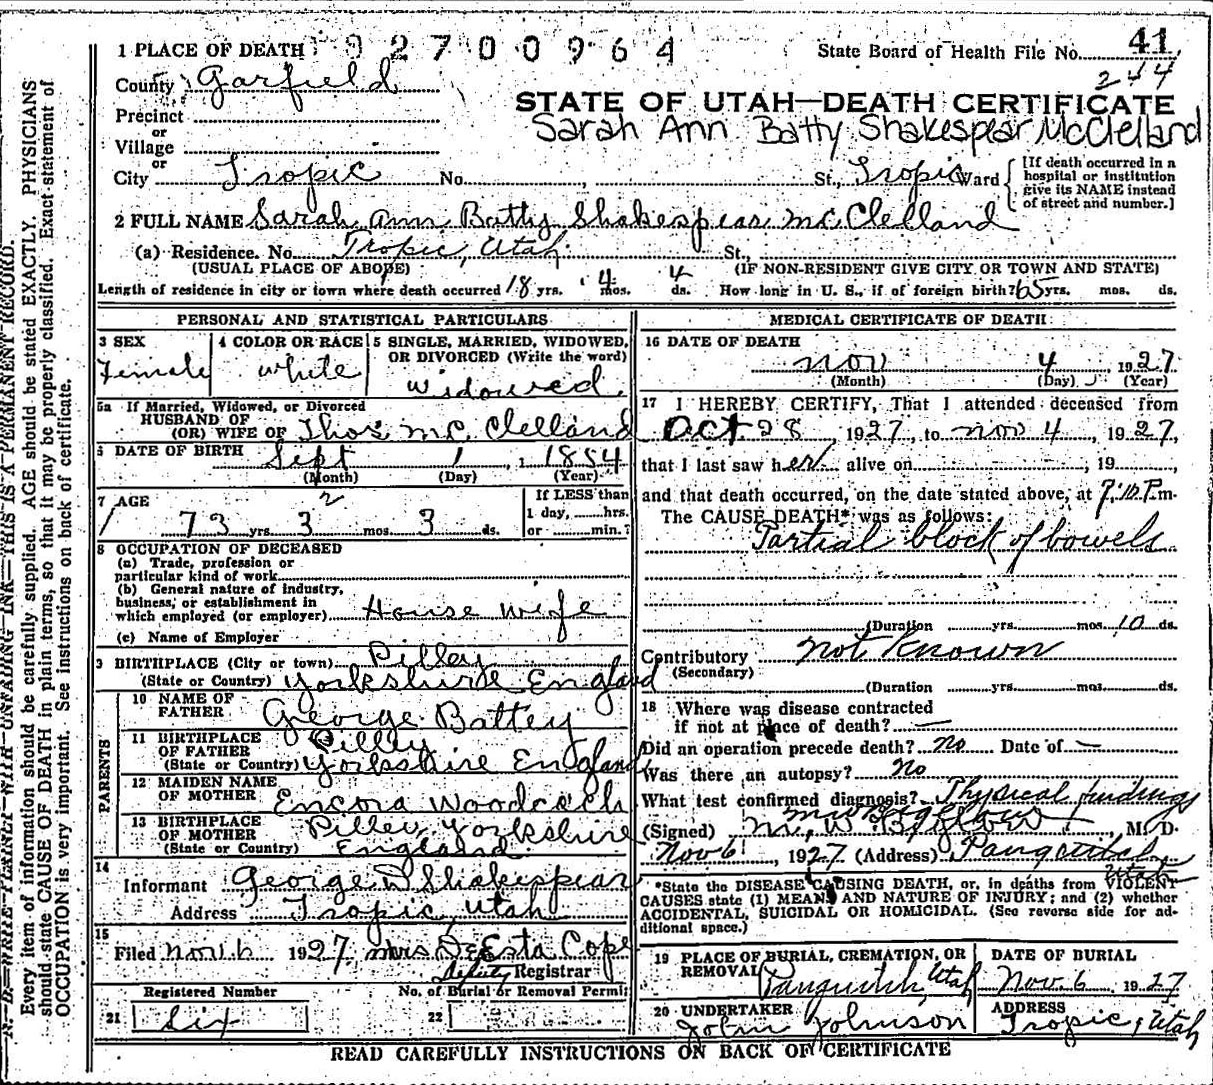 1 PLACE OF DEATH 92700964 State Board of Health File No. 41
244
County Garfield
STATE OF UTAH—DEATH CERTIFICATE
Precinct
or
Sarah Ann Batty Shakespear McClelland
Village
or
City Tropic No. St., Tropic Ward
[If death occurred in a hospital or institution give its NAME instead of street and number.]
2 FULL NAME Sarah Ann Batty Shakespear McClelland
(a) Residence. No. Tropic, Utah St.,
(USUAL PLACE OF ABODE) (IF NON-RESIDENT GIVE CITY OR TOWN AND STATE)
Length of residence in city or town where death occurred 18 yrs. 4 mos. 4 ds. How long in U. S., if of foreign birth? 65 yrs. mos. ds.
PERSONAL AND STATISTICAL PARTICULARS
3 SEX 4 COLOR OR RACE 5 SINGLE, MARRIED, WIDOWED,
OR DIVORCED (Write the word)
Female white Widowed
5a If Married, Widowed, or Divorced
HUSBAND OF
(OR) WIFE OF Thos McClelland
6 DATE OF BIRTH Sept 1, 1854
(Month) (Day) (Year)
7 AGE 2 If LESS than
1 day, hrs.
73 yrs. 3 mos. 3 ds. or min.?
8 OCCUPATION OF DECEASED
(a) Trade, profession or
particular kind of work
(b) General nature of industry,
business, or establishment in
which employed (or employer) House wife
(c) Name of Employer
9 BIRTHPLACE (City or town) Pilley
(State or Country) Yorkshire England
PARENTS
10 NAME OF
FATHER George Battey
11 BIRTHPLACE
OF FATHER Pilley
(State or Country) Yorkshire England
12 MAIDEN NAME
OF MOTHER Encora Woodcock
13 BIRTHPLACE
OF MOTHER Pilley, Yorkshire
(State or Country) England
14
Informant George W Shakespear
Address Tropic, Utah
15
Filed Nov. 6 1927 Mrs DeEsta Cope
deputy Registrar
Registered Number No. of Burial or Removal Permit
21 Six 22
MEDICAL CERTIFICATE OF DEATH
16 DATE OF DEATH
Nov 4 1927
(Month) (Day) (Year)
17 I HEREBY CERTIFY, That I attended deceased from
Oct 28, 1927, to Nov 4, 1927,
that I last saw her alive on , 19 ,
and that death occurred, on the date stated above, at 7:10 P.m.
The CAUSE DEATH* was as follows:
Partial block of bowels
(Duration yrs. mos. 10 ds.
Contributory not Known
(Secondary)
(Duration yrs. mos. ds.
18 Where was disease contracted
if not at place of death? —
Did an operation precede death? no Date of —
Was there an autopsy? no
What test confirmed diagnosis? Physical findings
(Signed) M. W. Bigelow, M. D.
Nov 6, 1927 (Address) Panguitch
Utah
*State the DISEASE CAUSING DEATH, or, in deaths from VIOLENT
CAUSES state (1) MEANS AND NATURE OF INJURY; and (2) whether
ACCIDENTAL, SUICIDAL OR HOMICIDAL. (See reverse side for ad-
ditional space.)
19 PLACE OF BURIAL, CREMATION, OR
REMOVAL Panguitch, Utah
DATE OF BURIAL
Nov. 6 1927
20 UNDERTAKER
John Johnson
ADDRESS
Tropic, Utah
READ CAREFULLY INSTRUCTIONS ON BACK OF CERTIFICATE
N. B.—WRITE PLAINLY WITH UNFADING INK—THIS IS A PERMANENT RECORD.
Every item of information should be carefully supplied. AGE should be stated EXACTLY. PHYSICIANS
should state CAUSE OF DEATH in plain terms, so that it may be properly classified. Exact statement of
OCCUPATION is very important. See instructions on back of certificate.